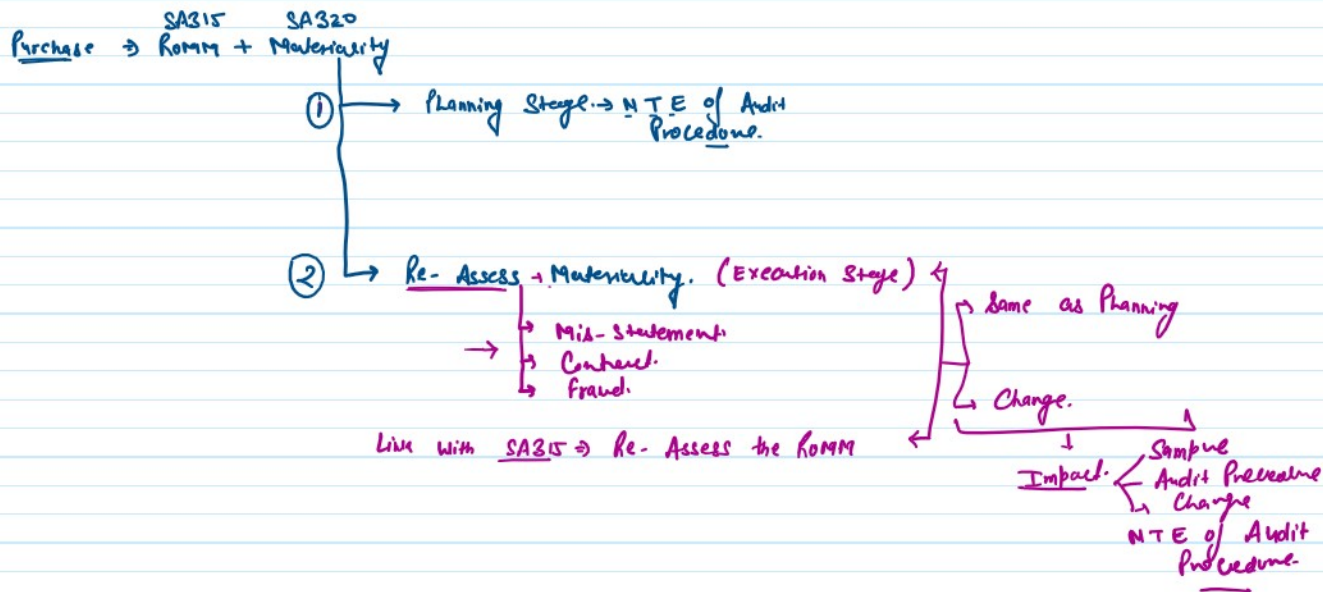 SA315 SA320
Purchase ⇒ RoMM + Materiality
① → Planning Stage. → N T E of Audit
Procedure.
② → Re-Assess → Materiality. (Execution Stage)
Same as Planning
→ Mis-Statement.
Control.
Fraud.
Change.
Link with SA315 ⇒ Re-Assess the RoMM
Impact.
Sample
Audit Procedure
Change
NTE of Audit
Procedure.